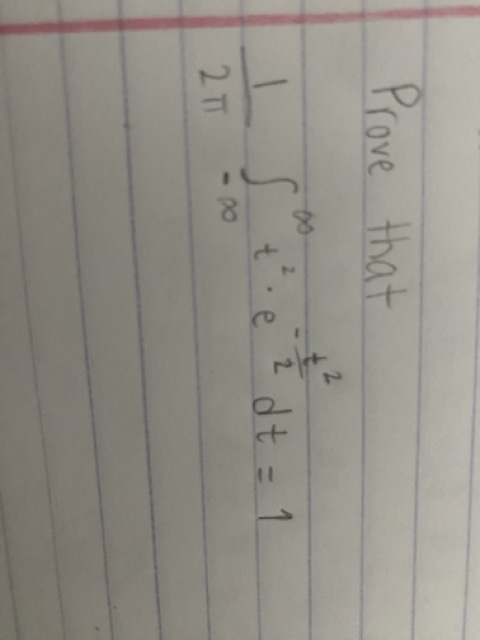 Prove that
1/2π ∫_{-∞}^{∞} t² · e^{-t²/2} dt = 1